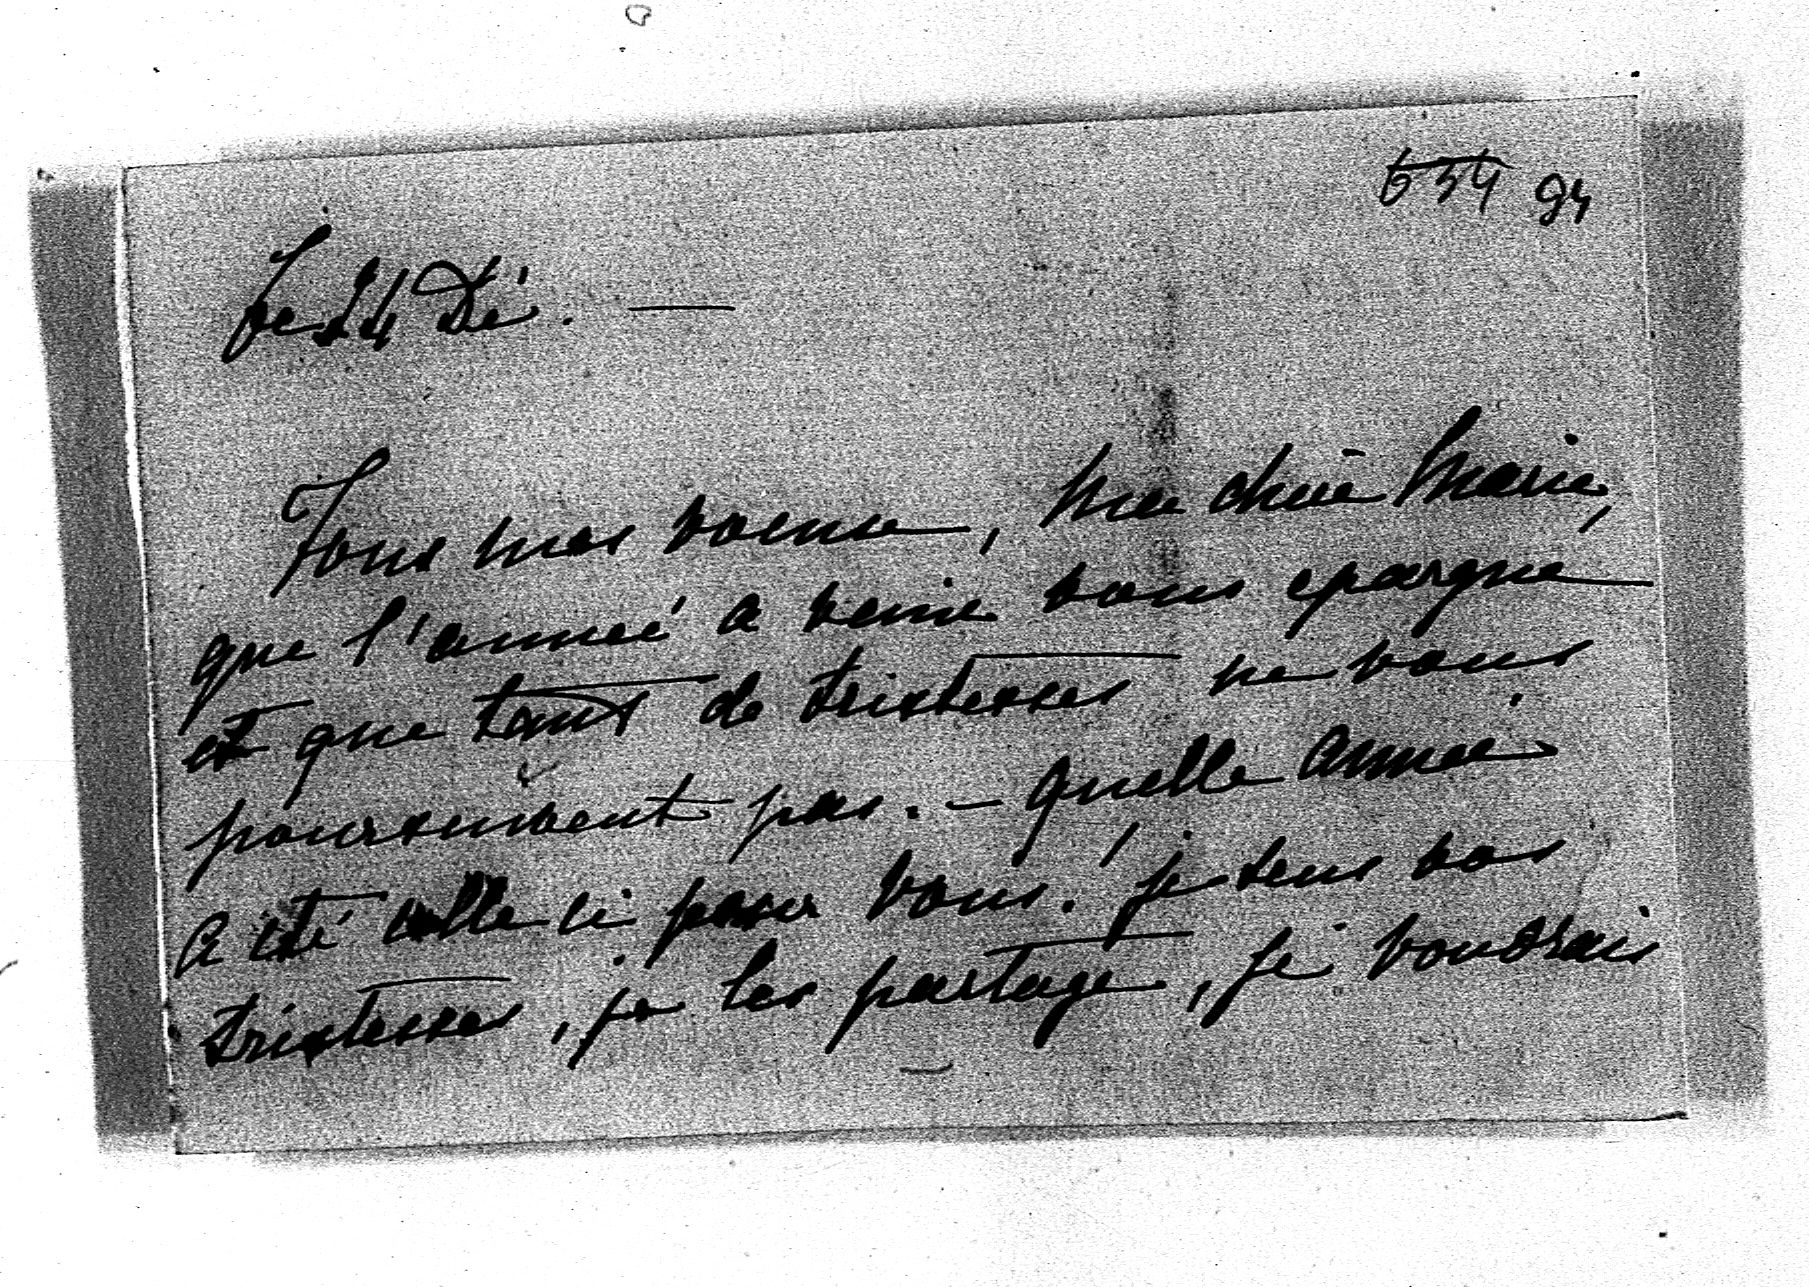 534 94
Le 24 Dé. —
Tous mes voeux, ma chère Marie,
que l'année a venir vous epargne
et que tant de tristesses ne vous
poursuivent pas. — Quelle année
a été celle ci pour vous! je sens vos
tristesses, je les partage, je voudrais